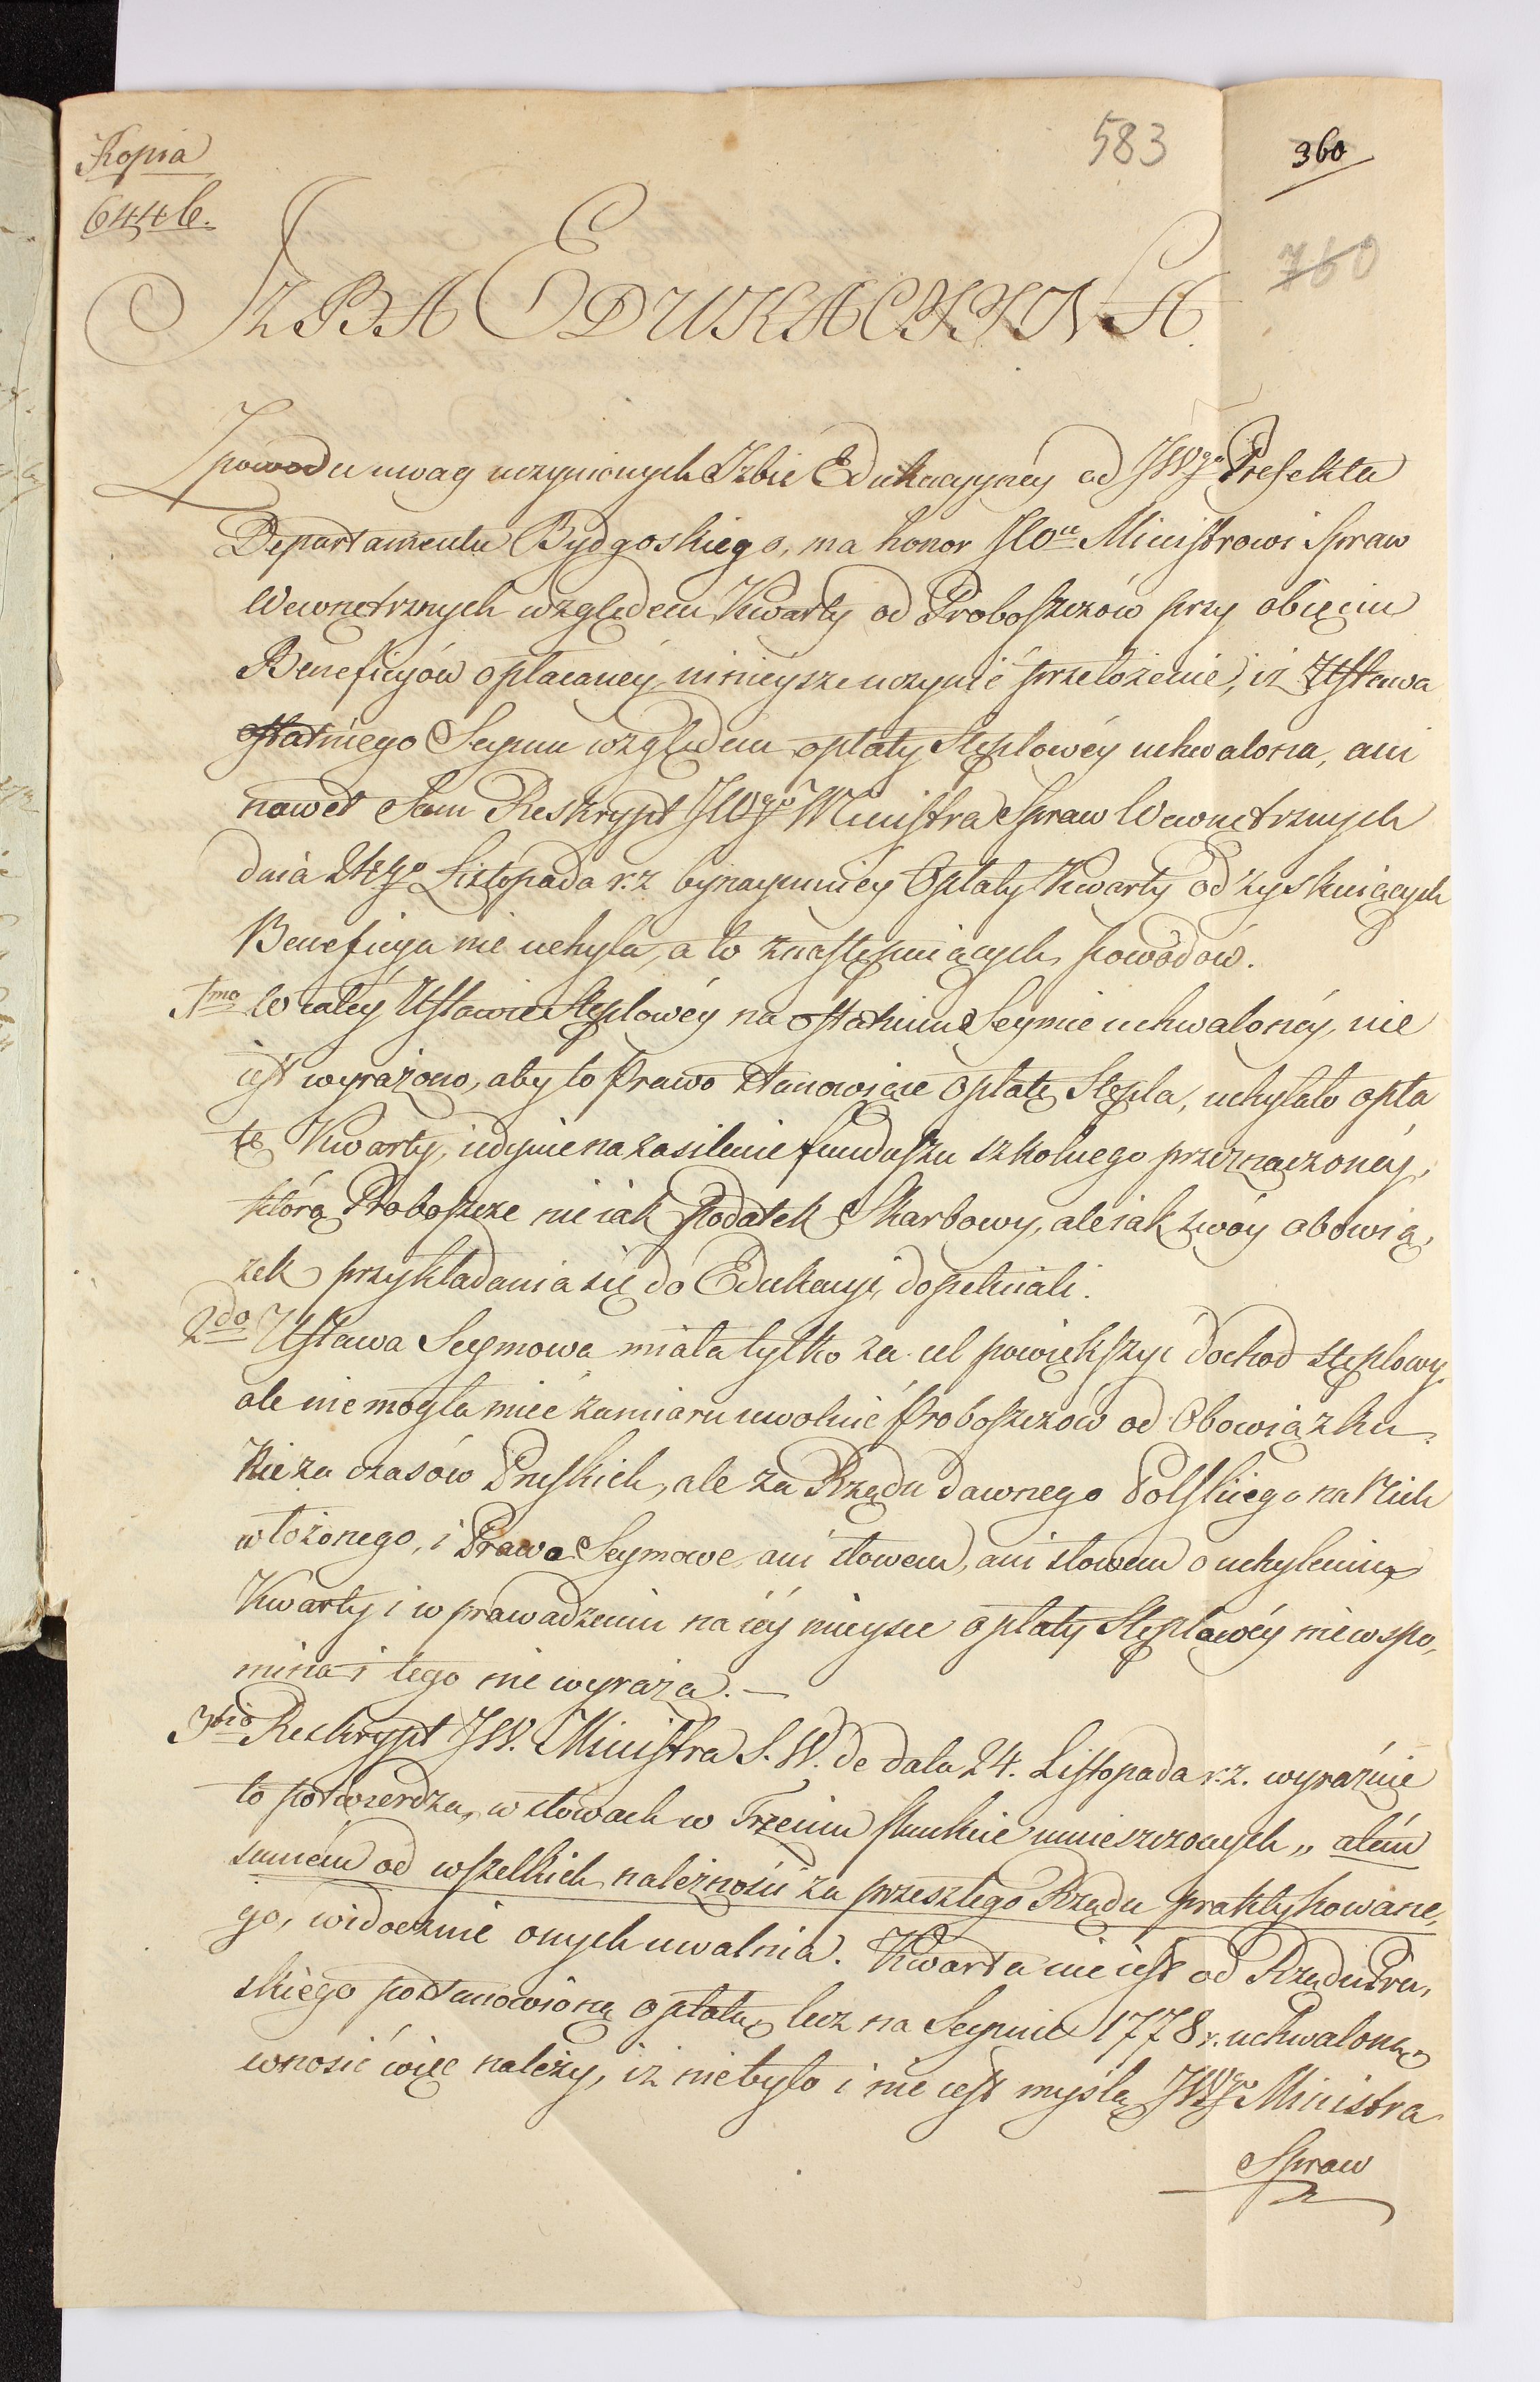 Kopia
6446.
583
360
760
IZBA EDUKACYYNA.
Z powodu uwag uczynionych Izbie Edukacyyney od JWgo Prefekta
Departamentu Bydgoskiego, ma honor JWu Ministrowi Spraw
Wewnętrznych względem Kwarty od Proboszczów przy obięciu
Beneficyów opłacanéy, ninieysze uczynić przełożenie, iż Ustawa
ostatniego Seymu względem opłaty Stęplowéy uchwalona, ani
nawet sam Reskrypt JWgo Ministra Spraw Wewnętrznych
dnia 24go Listopada r. z. bynaymniéy Opłaty Kwarty od zyskuiących
Beneficya nie uchyla, a to z następuiących powodów.
1mo W całéy Ustawie Stęplowéy na ostatnim Seymie uchwalonéy, nie
iest wyrażono, aby to Prawo stanowiące opłatę Stępla, uchylało opła
tę Kwarty, iedynie na zasilenie funduszu szkolnego przeznaczonéy,
którą Proboszcze nie iak Podatek Skarbowy, ale iak swóy obowią,
zek przykładania się do Edukacyi, dopełniali.
2do Ustawa Seymowa miała tylko za cel powiększyć dochod stęplowy,
ale nie mogła mieć zamiaru uwolnić Proboszczów od Obowiązku,
Nie za czasów Pruskich, ale za Rządu dawnego Polskiego na Nich
włożonego, i Prawo Seymowe, ani słowem, ani słowem o uchyleniu
Kwarty i w prawadzeniu na iéy mieysce opłaty Stęplowéy nie wspo,
mina i tego nie wyraża. —
3tio Reskrypt JW. Ministra S. W. de dato 24. Listopada r. z. wyraźnie
to potwierdza, w słowach w Trzecim punkcie umieszczonych „ atém
samém od wszelkich należności za przeszłego Rządu praktykowane,
go, widocznie onych uwalnia. Kwarta nie iest od Rządu Pru,
skiego postanowioną opłatą, lecz na Seymie 1778 r. uchwaloną,
wnosić więc należy, iż nie było i nie iest myślą JWgo Ministra
Spraw